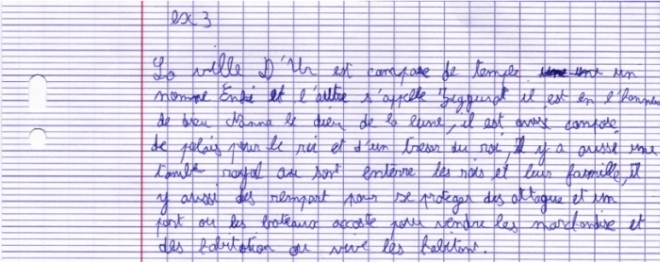 ex 3
La ville D'Ur est compose de temple un
nomme Enki et l'autre s'appelle Ziggurat il est en l'honneur
de dieu Nanna le dieu de la lune, il est aussi compose
de palais pour le roi et d'un tresor du roi, il y a aussi une
tombe royal ou sont enterre les rois et leur famille, il
y aussi des rempart pour se proteger des attaque et un
port ou les bateaux accoste pour vendre les marchandise et
des habitation ou vive les habitons.